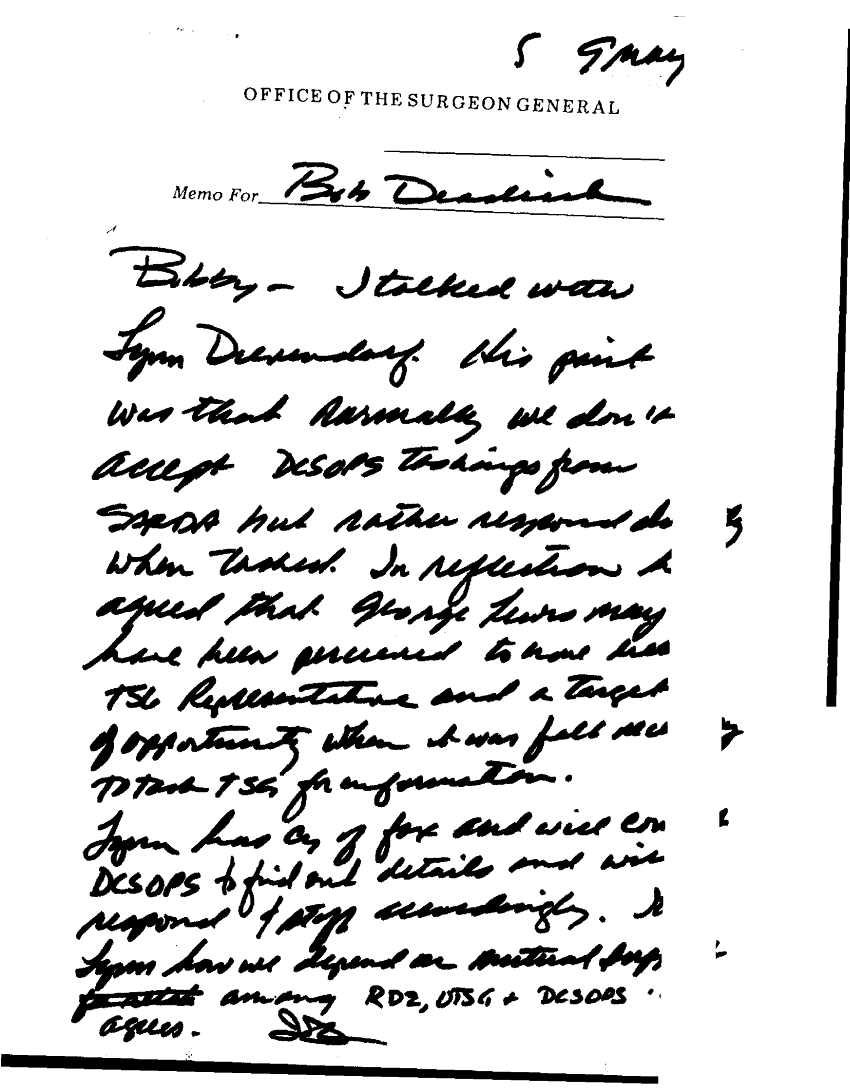 5 9 May
OFFICE OF THE SURGEON GENERAL
Memo For Bob
Bobby - I talked with
Lynn His point
was that normally we don't
accept DCSOPS taskings from
SARDA but rather respond
when tasked. In reflection
agreed that George Lewis may
have been perceived to have been
TSG Representative and a target
of opportunity when it was felt
To task TSG for information.
Lynn has cy of fax and will
DCSOPS to find out details and
respond & staff accordingly.
Lynn how we depend on mutual
among RDZ, OTSG + DCSOPS
agrees.